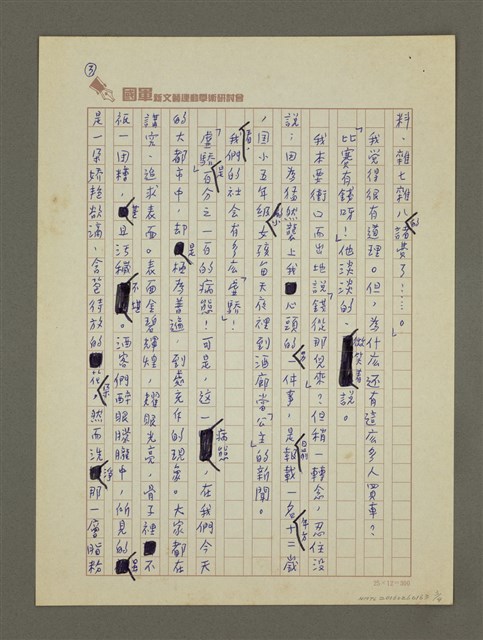 ③
國軍新文藝運動學術研討會
料、雜七雜八的諸費了……。」
我覺得很有道理。但,為什么還有這么多人買車?
「比賽有錢呀!」他淡淡的、微笑着說。
我本要衝口而出地說錢從那兒來?但稍一轉念,忍住沒
說;因為猛然襲上我心頭的另一件事,是日前報載一名年方十二歲
,國小五年級的小女孩自天夜裡到酒廊當「公主」的新聞。
看,我們的社會有多么虛驕!
「虛驕」是百分之一百的病態!可是,這一病態,在我們今天
的大都市中,却是極為普遍,到處充斥的現象。大家都在
講究、追求表面。表面金碧輝煌,耀眼光亮,骨子裡不
祇一團糟,並且污穢不堪。酒客們醉眼朦朧中,所見的
是一朵嬌艷欲滴,含苞待放的花朵,然而洗淨那一層脂粉
25×12=300